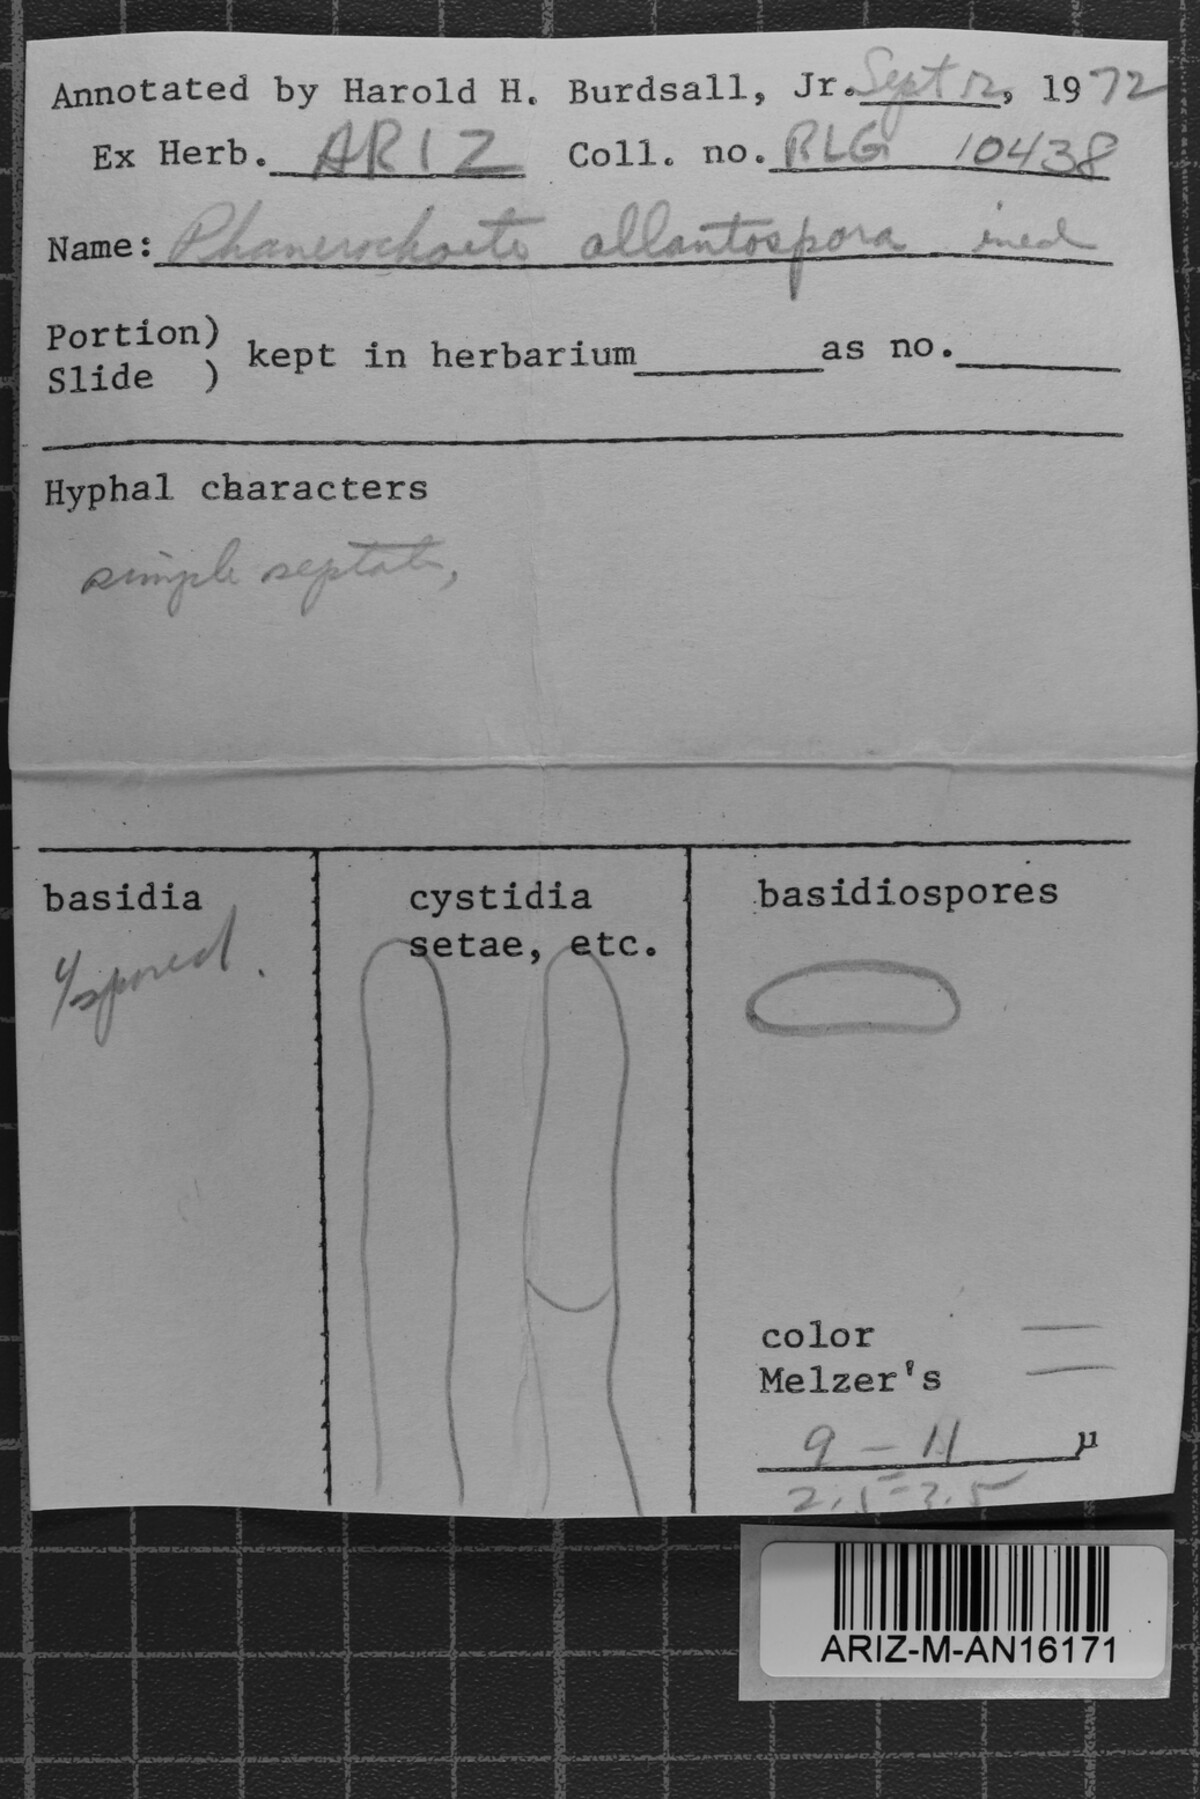 Annotated by Harold H. Burdsall, Jr. Sept 12, 1972
Ex Herb. ARIZ Coll. no. RLG 10438
Name: Phanerochaete allantospora ined
Portion)
Slide ) kept in herbarium as no.
Hyphal characters
simple septate,
basidia
4 spored.
cystidia
setae, etc.
basidiospores
color —
Melzer's —
9 – 11 µ
2.5 – 3.5
ARIZ-M-AN16171